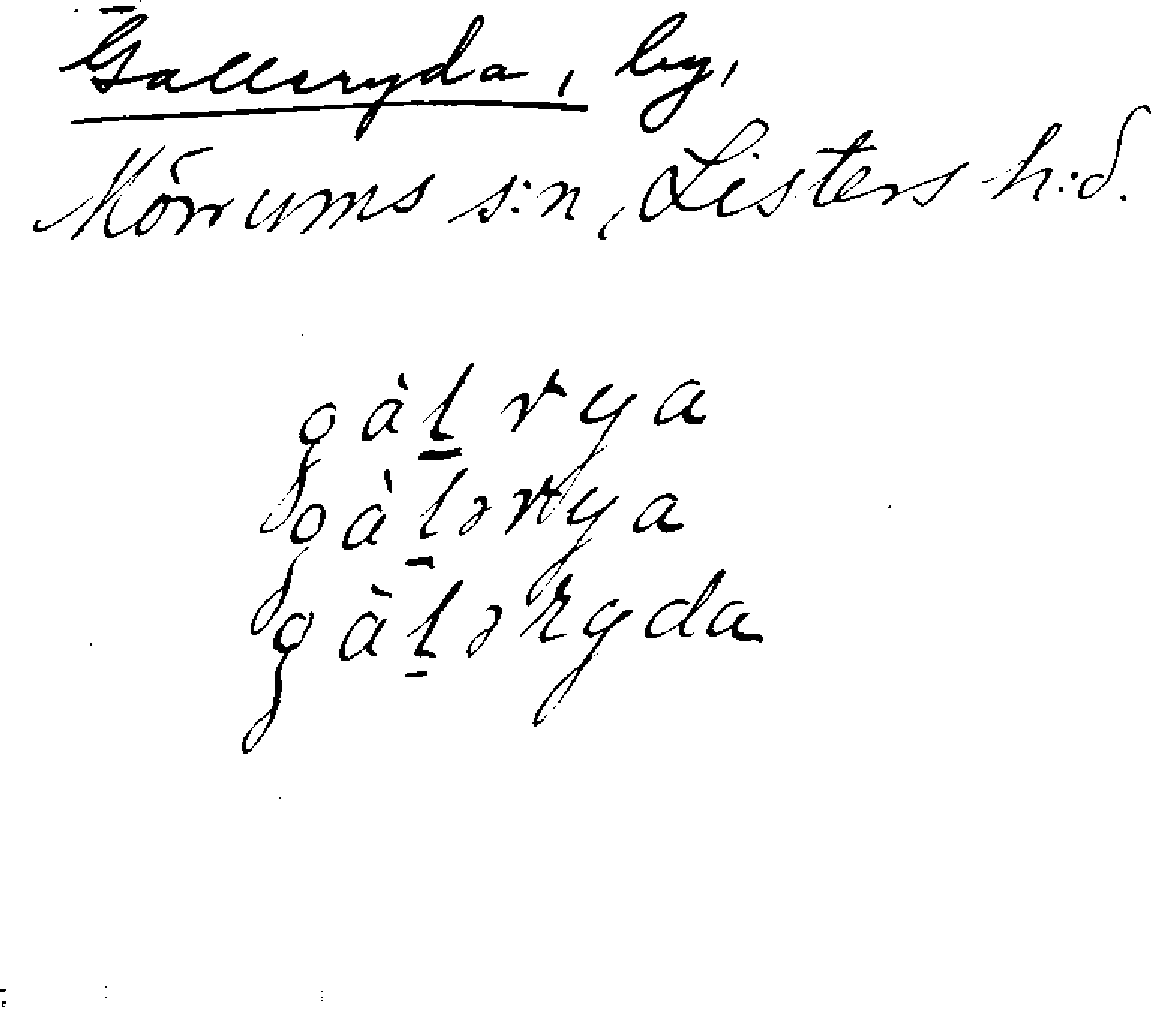 Galleryda, by,
Mörrums s:n, Listers h:d.
gàḻrya
gàḻərya
gàḻəryda